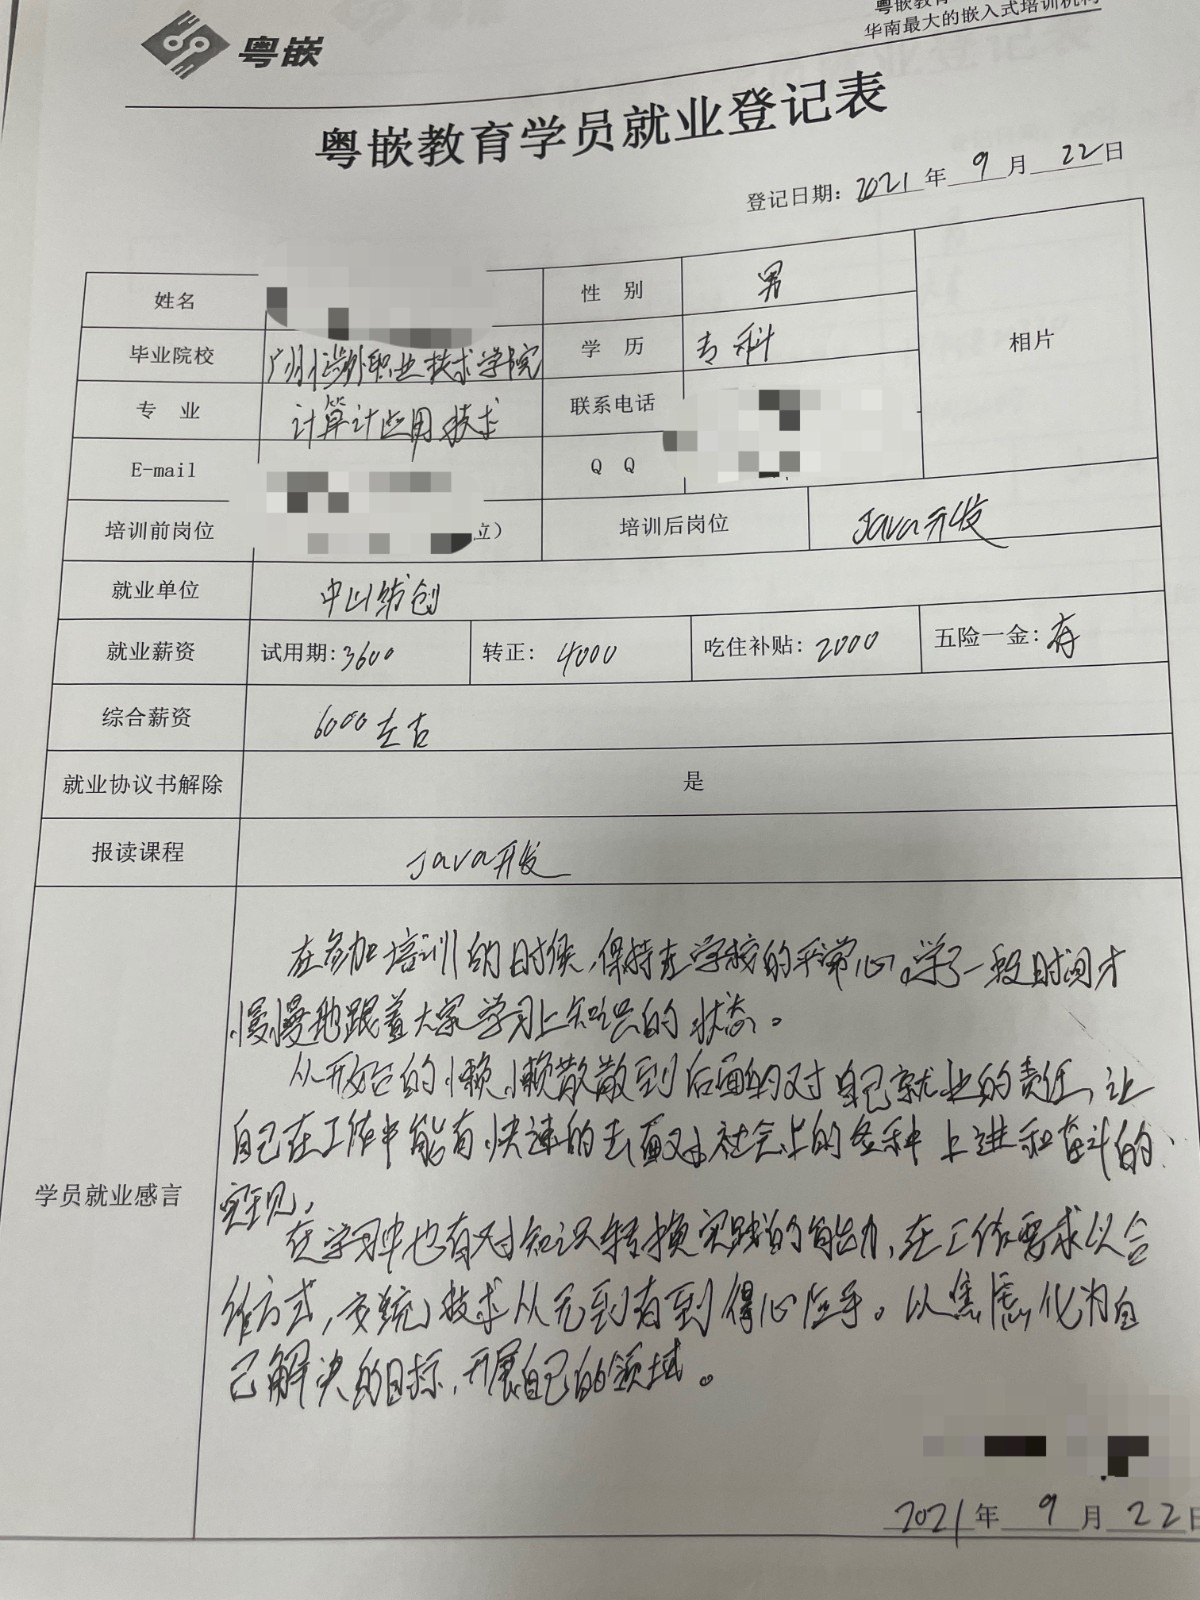 粤嵌
粤嵌教育
华南最大的嵌入式培训机构
粤嵌教育学员就业登记表
登记日期：2021年9月22日
姓名 性别 男 相片
毕业院校 广州涉外职业技术学院 学历 专科
专业 计算计应用技术 联系电话
E-mail QQ
培训前岗位 立） 培训后岗位 Java开发
就业单位 中山纺创
就业薪资 试用期：3600 转正：4000 吃住补贴：2000 五险一金：有
综合薪资 6000左右
就业协议书解除 是
报读课程 Java开发
学员就业感言
在参加培训的时候，保持在学校的平常心，学了一段时间才
慢慢地跟着大家学习上知识的状态。
从开始的懒懒散散到后面的对自己就业的责任，让
自己在工作中能有快速的去面对社会上的各种上进和奋斗的
实现。
在学习中也有对知识转换实践的能力，在工作要求以合
作方式，交统，技术从无到有到得心应手。以焦虑，化为自
己解决的目标，开展自己的领域。
2021年9月22日